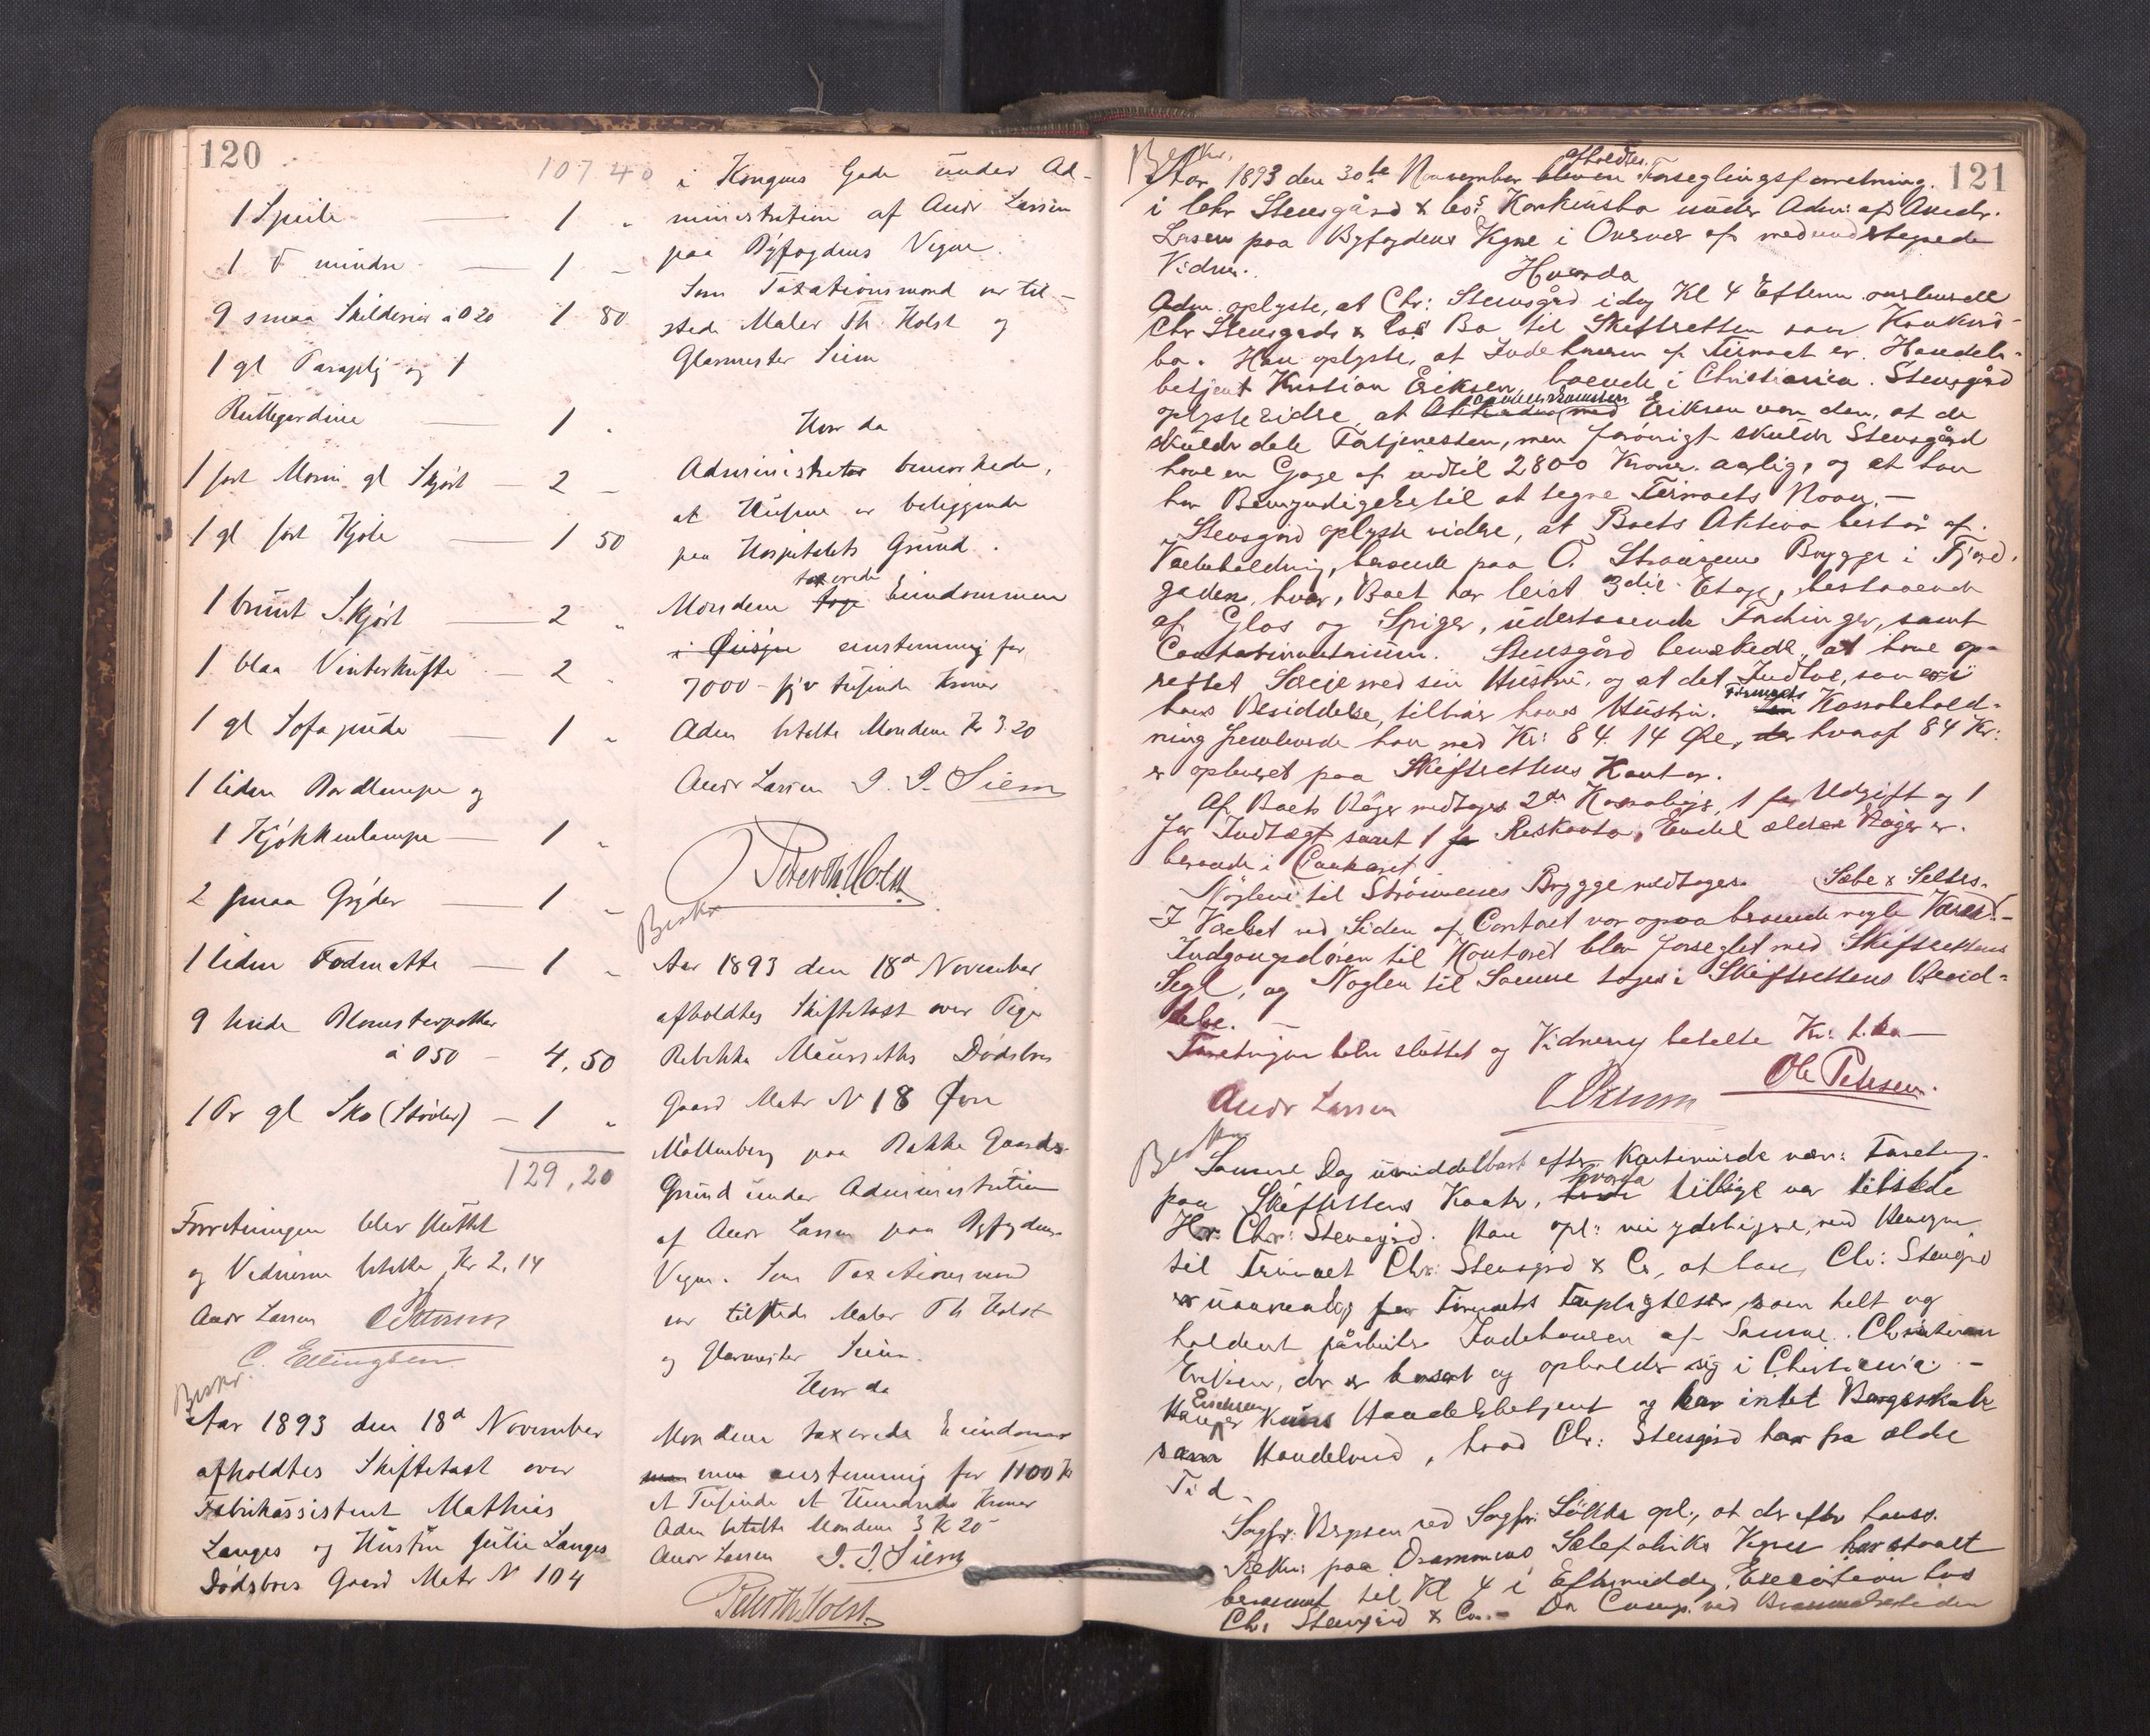 120
107 40
1 Speile — 1 "
1 do mindre — 1 "
9 smaa Skilderier à 0 20 1 80
1 gl Paraply og 1
Rullegardine — 1 "
1 sort Moiri gl Skjørt — 2 "
1 gl sort Kjole — 1 50
1 brunt Skjørt — 2 "
1 blaa Vinterkufte — 2 "
1 gl Sofapude — 1 "
1 liden Bordlampe og
1 Kjøkkenlampe — 1 "
2 smaa Gryder — 1 "
1 liden Fodmatte — 1 "
9 hvide Blomsterpotter
à 050 — 4,50
1 Pr gl Sko (Støvler) — 1 "
129,20
Forretningen blev sluttet
og Vidnerne betalte Kr 2,14
Andr Larsen O Petersen
C. Ellingsen
Beskr.
Aar 1893 den 18d November
afholdtes Skiftetaxt over
Fabrikassistent Mathias
Langes og Hustru Julie Langes
Dødsbos Gaard Matr N 104
i Kongens Gade under Ad-
ministration af Andr Larsen
paa Byfogdens Vegne.
Som Taxationsmænd var til-
stede Maler Th Holst og
Glarmester Siem
Hvorda
Administrator bemærkede,
at Husene er beliggende
paa Hospitalets Grund.
Mændene taxerede Eiendommen
i Øisjn eenstemmig for
7000 - syv tusinde Kroner
Adm betalte Mændene Kr 3.20
Andr Larsen I. I. Siem
Peter Th. Holst.
Beskr
Aar 1893 den 18d November
afholdtes Skiftetaxt over Pige
Rebekka Dødsbos
Gaard Matr N 18 Øvre
Møllenberg paa Bakke Gaards
Grund under Administration
af Andr Larsen paa Byfogdens
Vegne. Som Taxationsmænd
var tilstede Maler Th Holst
og Glarmester Siem.
Hvorda
Mændene taxerede Eiendom
men eenstemmig for 1100 Kr
et Tusinde et Hundrede Kroner
Adm betalte Mændene 3 Kr 20
Andr Larsen I. I. Siem
Peter Th. Holst.
121
Beskr.
Aar 1893 den 30te November bleven afholdtes Forseglingsforretning
i Chr Stensgård & Co's Konkursbo under Adm: af Andr.
Larsen paa Byfogdens Vegne i Overvær af medundertegnede
Vidner.
Hvorda
Adm. oplyste, at Chr: Stensgård idag Kl 4 Efterm overleverede
Chr Stensgards & Co's Bo til Skifteretten som Konkurs-
bo. Han oplyste, at Indehaveren af Firmaet er Handels-
betjent Kristian Eriksen, boende i Christiania. Stensgård
oplyste videre, at med Eriksen var den, at de
skulde dele Fortjenesten, men forøvrigt skulde Stensgård
have en Gage af indtil 2800 Kroner aarlig, og at han
har Bemyndigelse til at tegne Firmaets Navn. —
Stensgård oplyste videre, at Boets Aktiva består af
Varebeholdning, beroende paa O. Strømmens Brygge i Fjord-
gaden, hvor Boet har leiet 3die Etage, bestaaende
af Glas og Spiger, udestaaende Fordringer, samt
Contorinventarium. Stensgård bemærkede, at have op-
rettet Særeie med sin Hustru, og at det Indbo, som er i
hans Besiddelse, tilhører hans Hustru. Firmaets Kassabehold-
ning fremleverede han med Kr: 84. 14 Øre, hvoraf 84 Kr:
er opleveret paa Skifterettens Kontor.
Af Boets Bøger medtoges 2de Kassabøger, 1 for Udgift og 1
for Indtægt samt 1 Reskontro, Endel ældre Bøger er
beroende i Contoret.
Nøglene til Strømmenes Brygge medtoges. Sæbe & Selters.
I Værelset ved Siden af Contoret var ogsaa beroende nogle Varer. —
Indgangsdøren til Kontoret blev forseglet med Skifterettens
Segl, og Nøglen til Samme toges i Skifterettens Besid-
delse. —
Forretningen blev sluttet og Vidnerne betalte
Andr Larsen O Petersen Ole Petersen.
Beskr
Samme Dag umiddelbart efter Forretning
paa Skifterettens Kontor, hvorda tillige var tilstede
Hr: Chr: Stensgård. Han opl: med Hensyn
til Firmaet Chr: Stensgård & Co, at han, Chr: Stensgård
er uansvarlig for Firmaets Forpligtelser, som helt og
holdent påhviler Indehaveren af Samme. Christian
Eriksen, der er bosat og opholder sig i Christiania. —
Erichsen er kuns Handelsbetjent og har intet Borgerskab
som Handelsmand, hvad Chr: Stensgård har fra ældre
Tid.
Sagfør: ved Sagfør: Løkke opl., at der efter hans
Rekv: paa Drammens Vegne har staaet
berammet til Kl 4 i Eftermiddag, Execution hos
Chr Stensgård & Co. — Da Comp. ved